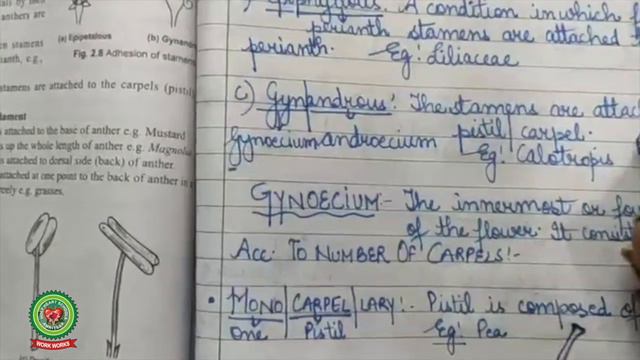 anthers are
(a) Epipetalous
(b) Gynand
Fig. 2.8 Adhesion of stamens
en stamens
ianth, e.g.,
stamens are attached to the carpels (pistil
lament
s attached to the base of anther e.g. Mustard
s up the whole length of anther e.g. Magnolia
is attached to dorsal side (back) of anther
attached at one point to the back of anther
e.g. grasses.
A condition in which
perianth stamens are attached
perianth. Eg: Liliaceae
c) Gynandrous: The stamens are attac
Gynoecium androecium pistil/carpel.
Eg: Calotropis
GYNOECIUM:- The innermost or fo
of the flower. It consti
Acc. TO NUMBER OF CARPELS:-
• MONO|CARPEL|LARY:- Pistil is composed of
one Pistil Eg: Pea
WORK WORKS